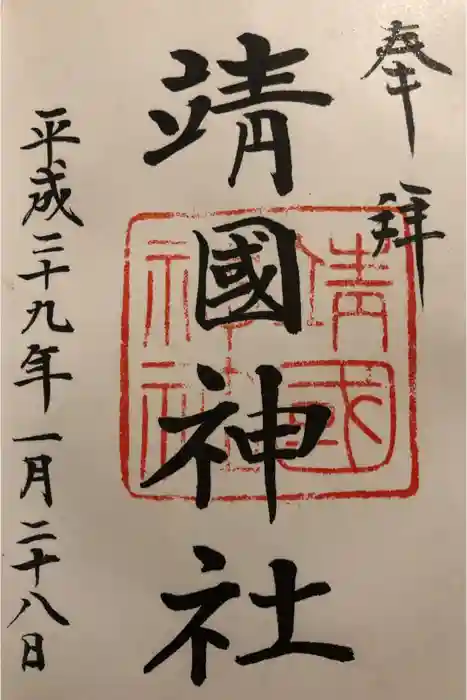 奉拝
靖國神社
靖國神社
平成二十九年一月二十八日